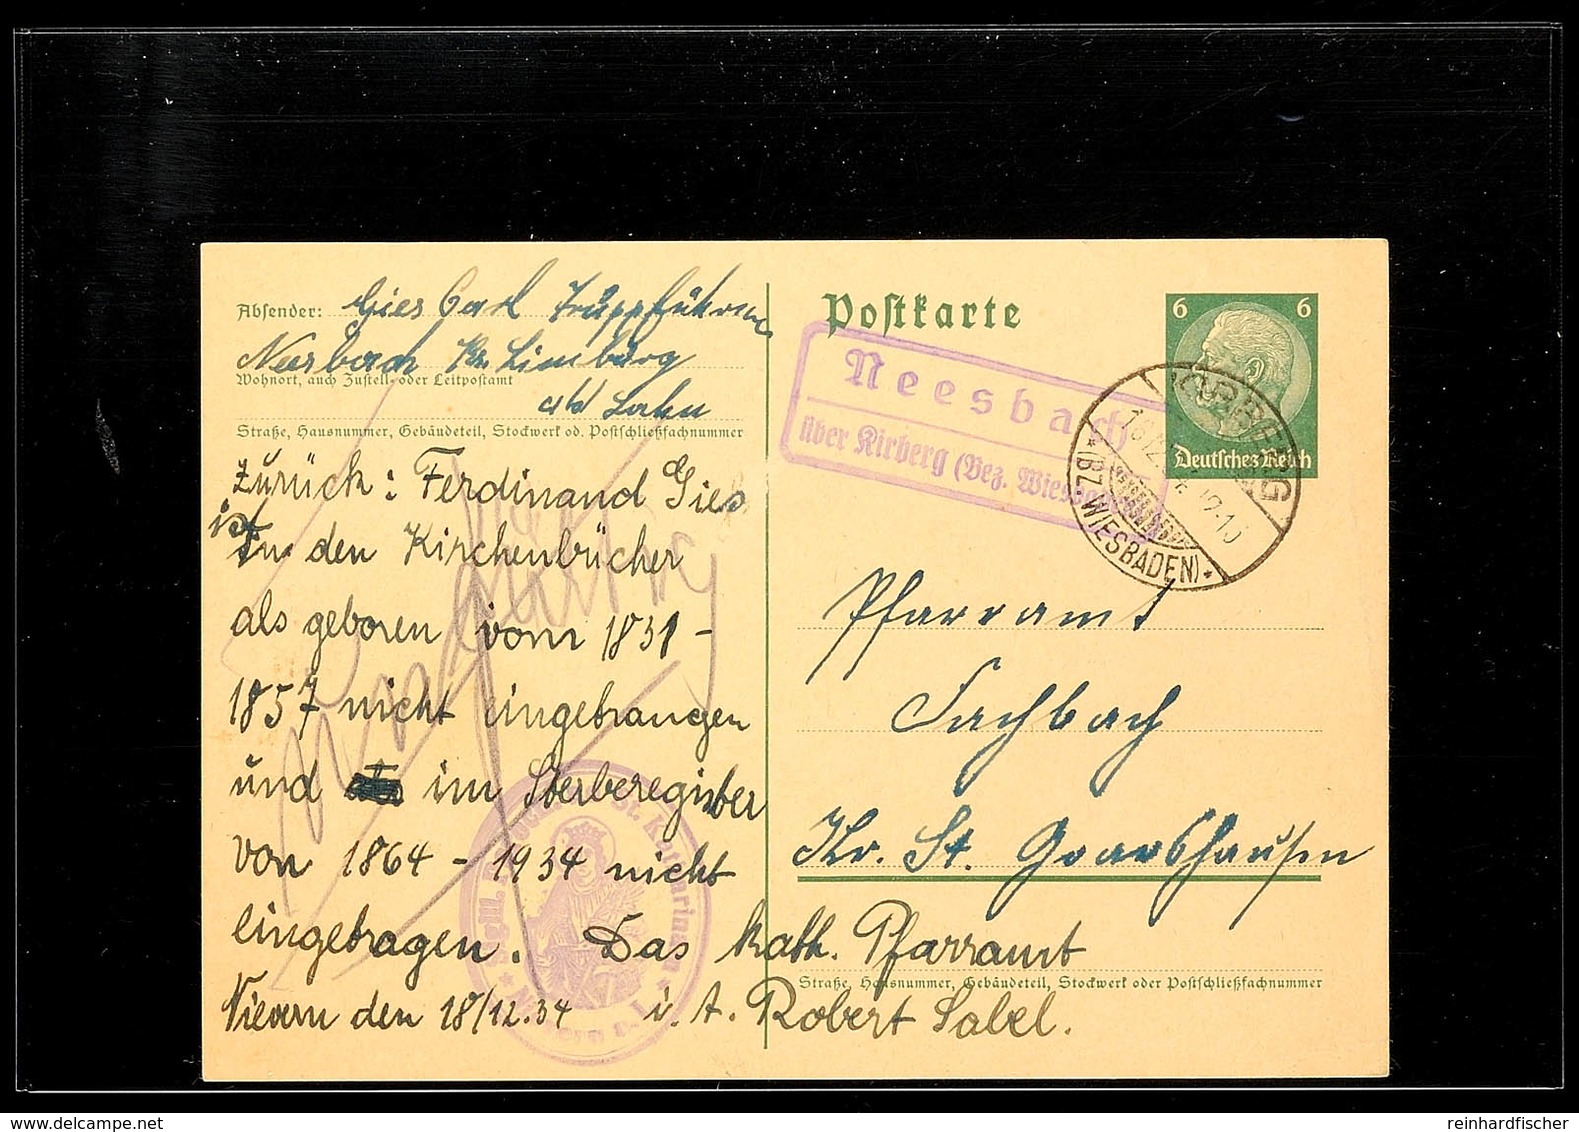 Absender: Gies Carl Truppführer
Neesbach Kr. Limburg
Wohnort, auch Zustell- oder Leitpostamt
a/d Lahn
Straße, Hausnummer, Gebäudeteil, Stockwerk od. Postschließfachnummer
zurück: Ferdinand Gies
ist
in den Kirchenbücher
als geboren vom 1831 -
1857 nicht eingetrangen
und im Sterberegister
von 1864 - 1934 nicht
eingetragen. Das kath. Pfarramt
Nievern den 18/12.34 i. A. Robert Sabel.
Postkarte
6 6
Deutsches Reich
Neesbach
über Kirberg (Bez. Wiesbaden)
KIRBERG
(BZ. WIESBADEN)
Pfarramt
Fachbach
Kr. St. Goarshausen
Straße, Hausnummer, Gebäudeteil, Stockwerk oder Postschließfachnummer
reinhardfischer